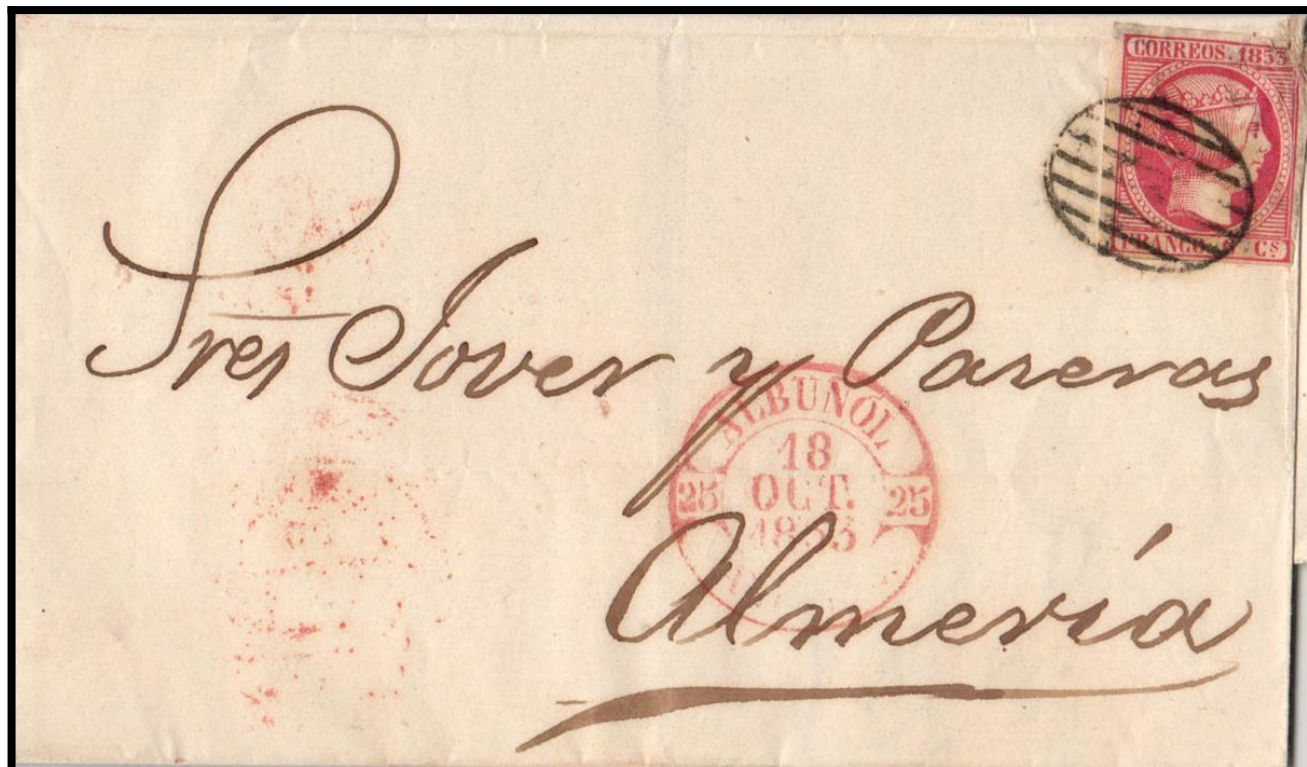 CORREOS. 1853
FRANCO 6 Cs
Sres Jover y Pareras
ALBUÑOL
18
25 OCT. 25
1853
Almería